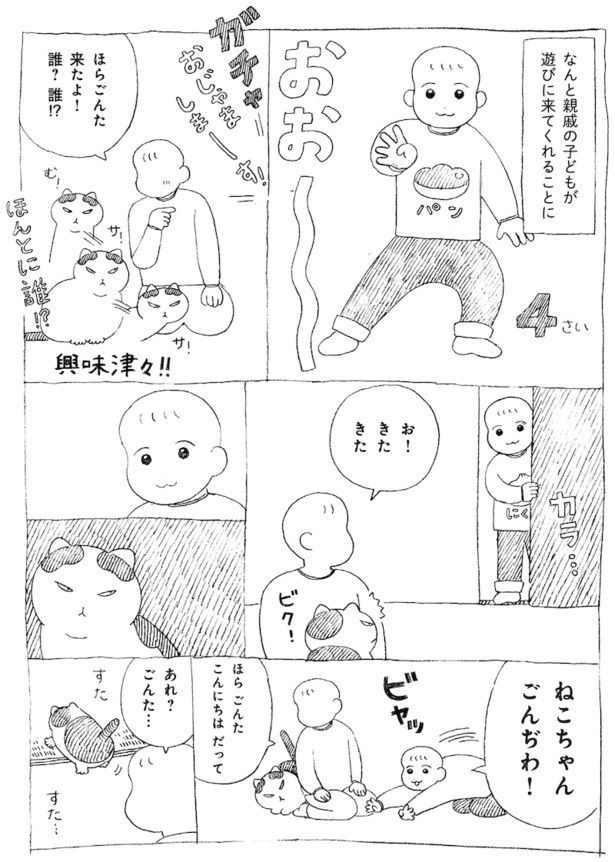 なんと親戚の子どもが
遊びに来てくれることに
おお
パン
4さい
ガチャ
おじゃま
しまーす!
ほらごんた
来たよ!
誰?誰!?
む!
サ!
サ!
ほんとに誰!?
興味津々!!
カラ…
にく
お!
きた
きた
ビク!
ねこちゃん
ごんぢわ!
ビャッ
ほら ごんた
こんにちは だって
あれ?
ごんた…
すた
すた…